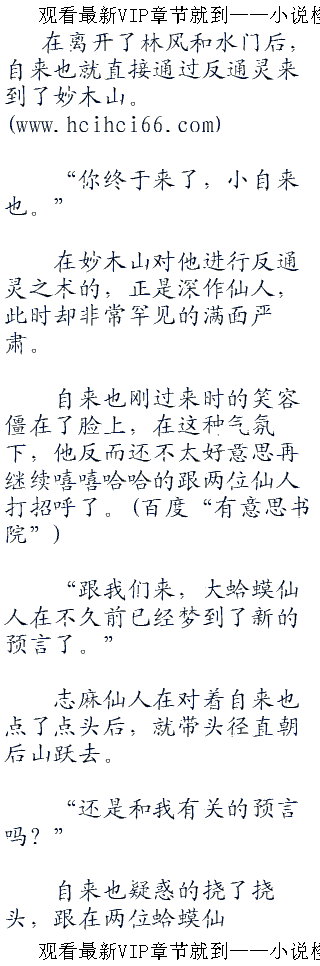 观看最新VIP章节就到——小说检
在离开了林风和水门后，
自来也就直接通过反通灵来
到了妙木山。
(www.hcihci66.com)
“你终于来了，小自来
也。”
在妙木山对他进行反通
灵之术的，正是深作仙人，
此时却非常罕见的满面严
肃。
自来也刚过来时的笑容
僵在了脸上，在这种气氛
下，他反而还不太好意思再
继续嘻嘻哈哈的跟两位仙人
打招呼了。(百度“有意思书
院”)
“跟我们来，大蛤蟆仙
人在不久前已经梦到了新的
预言了。”
志麻仙人在对着自来也
点了点头后，就带头径直朝
后山跃去。
“还是和我有关的预言
吗？”
自来也疑惑的挠了挠
头，跟在两位蛤蟆仙
观看最新VIP章节就到——小说检